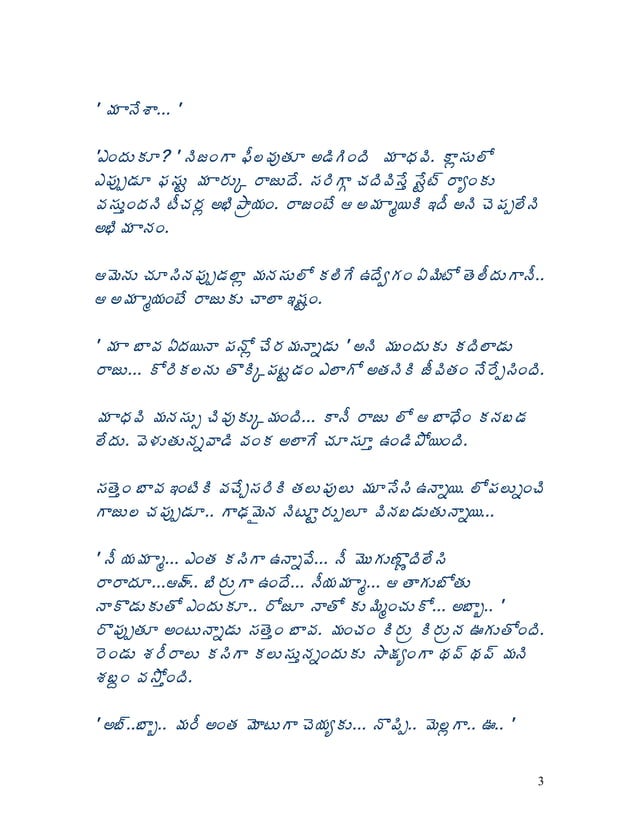 ' మానేశా... '
'ఎందుకూ? ' నిజంగా ఫీలవుతూ అడిగింది మాధవి. క్లాసులో
ఎప్పుడూ ఫస్టు మార్కు రాజుదే. సరిగ్గా చదివిస్తే స్టేట్ ర్యాంకు
వస్తుందని టీచర్ల అభిప్రాయం. రాజంటే ఆ అమ్మాయికి ఇదీ అని చెప్పలేని
అభిమానం.
ఆమెను చూసినప్పుడల్లా మనసులో కలిగే ఉద్వేగం ఏమిటో తెలీదుగానీ..
ఆ అమ్మాయంటే రాజుకు చాలా ఇష్టం.
' మా బావ ఏదయినా పన్లో చేరమన్నాడు ' అని ముందుకు కదిలాడు
రాజు... కోరికలను తొక్కిపట్టడం ఎలాగో అతనికి జీవితం నేర్పేసింది.
మాధవి మనస్సు చివుక్కుమంది... కానీ రాజు లో ఆ బాధేం కనబడ
లేదు. వెళుతున్నవాడి వంక అలాగే చూస్తూ ఉండిపోయింది.
సత్తెం బావ ఇంటికి వచ్చేసరికి తలుపులు మూసేసి ఉన్నాయి. లోపలునించి
గాజుల చప్పుడూ.. గాఢమైన నిట్టూర్పులూ వినబడుతున్నాయి...
' నీ యమ్మా... ఎంత కసిగా ఉన్నావే... నీ మొగుణ్ణొదిలేసి
రారాదూ...ఆహ్.. బిర్రుగా ఉందే... నీయమ్మా... ఆ తాగుబోతు
నాకొడుకుతో ఎందుకూ.. రోజూ నాతో కుమ్మించుకో... అబ్బా.. '
రొప్పుతూ అంటున్నాడు సత్తెం బావ. మంచం కిర్రు కిర్రున ఊగుతోంది.
రెండు శరీరాలు కసిగా కలుస్తున్నందుకు సాక్ష్యంగా థప్ థప్ మని
శబ్దం వస్తోంది.
'అబ్..బ్బా.. మరీ అంత మోటుగా చెయ్యకు... నొప్పి.. మెల్లగా.. ఊ.. '
3